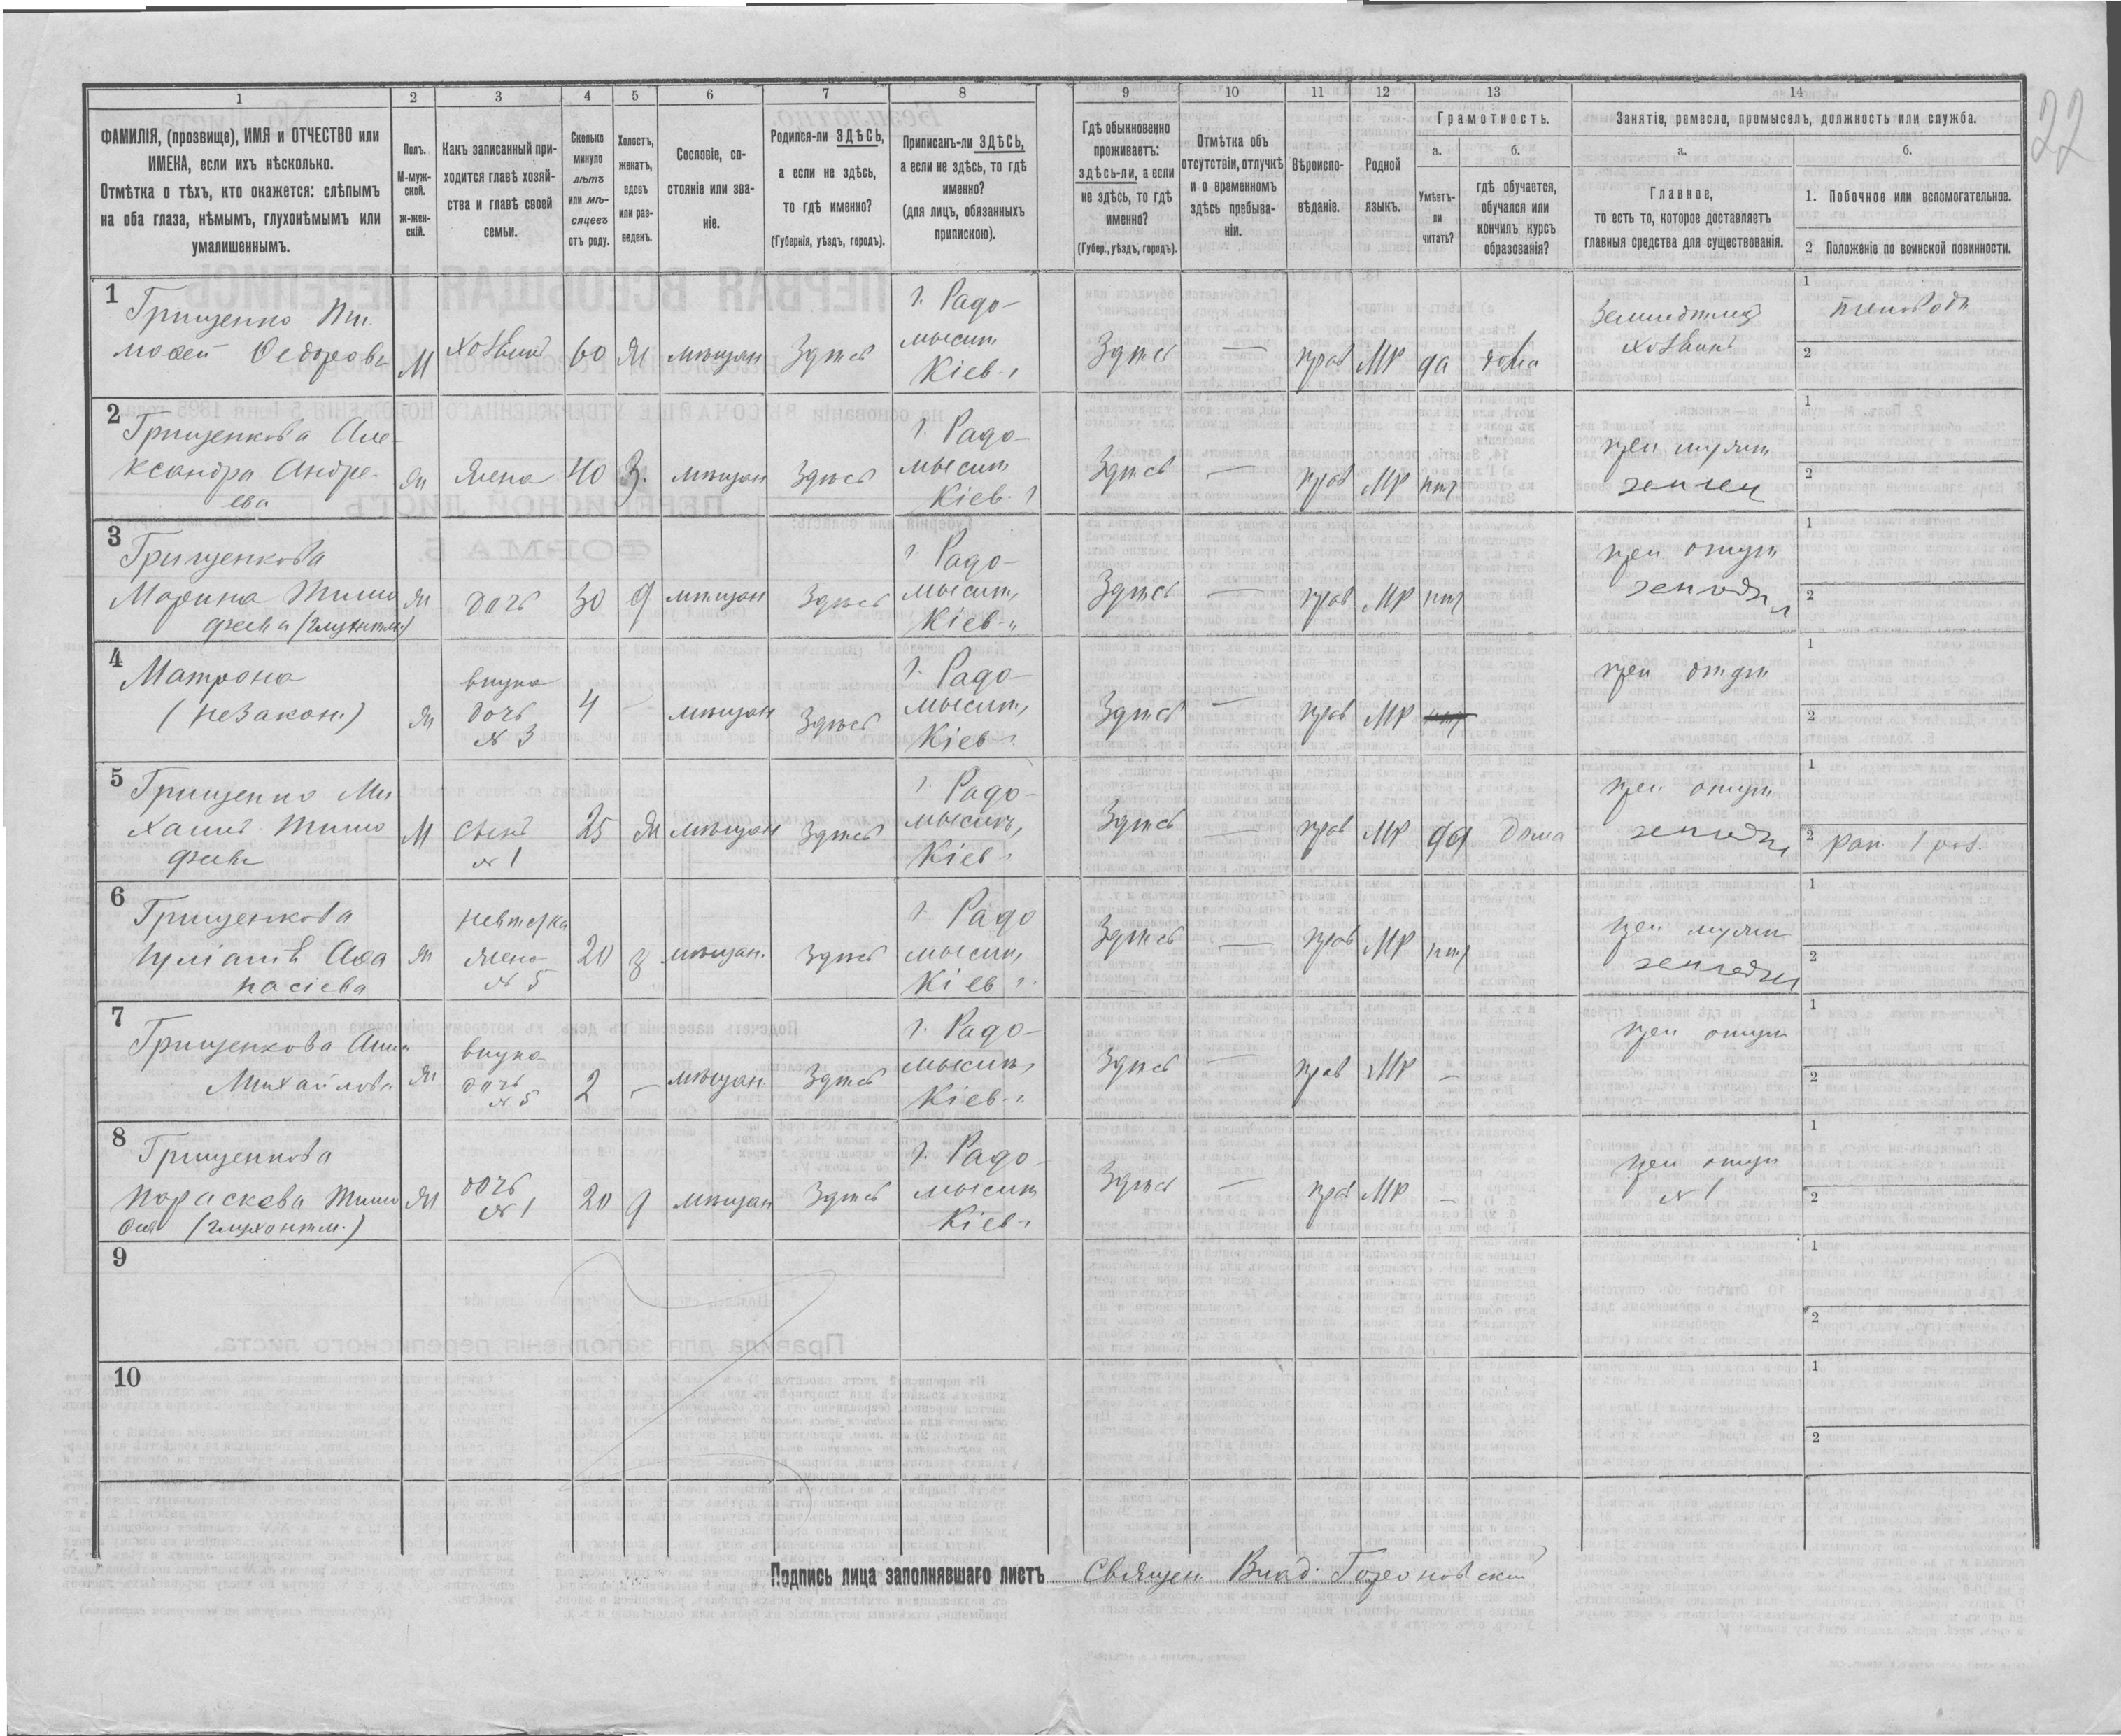 22
1
2
3
4
5
6
7
8
9
10
11
12
13
14
ФАМИЛІЯ, (прозвище), ИМЯ и ОТЧЕСТВО или
ИМЕНА, если ихъ нѣсколько.
Отмѣтка о тѣхъ, кто окажется: слѣпымъ
на оба глаза, нѣмымъ, глухонѣмымъ или
умалишеннымъ.
Полъ.
М-муж-
ской.
ж-жен-
скій.
Какъ записанный при-
ходится главѣ хозяй-
ства и главѣ своей
семьи.
Сколько
минуло
лѣтъ
или мѣ-
сяцевъ
отъ роду.
Холостъ,
женатъ,
вдовъ
или раз-
веденъ.
Сословіе, со-
стояніе или зва-
ніе.
Родился-ли ЗДѢСЬ,
а если не здѣсь,
то гдѣ именно?
(Губернія, уѣздъ, городъ).
Приписанъ-ли ЗДѢСЬ,
а если не здѣсь, то гдѣ
именно?
(для лицъ, обязанныхъ
припискою).
Гдѣ обыкновенно
проживаетъ:
здѣсь-ли, а если
не здѣсь, то гдѣ
именно?
(Губер., уѣздъ, городъ).
Отмѣтка объ
отсутствіи, отлучкѣ
и о временномъ
здѣсь пребыва-
ніи.
Вѣроиспо-
вѣданіе.
Родной
языкъ.
Грамотность.
а.
Умѣетъ-
ли
читать?
б.
гдѣ обучается,
обучался или
кончилъ курсъ
образованія?
Занятіе, ремесло, промыселъ, должность или служба.
а.
Главное,
то есть то, которое доставляетъ
главныя средства для существованія.
б.
1. Побочное или вспомогательное.
2 Положеніе по воинской повинности.
1
Грищенко Ти
мофей Федоровъ
М
Хозяинъ
60
Ж
мѣщан
Здѣсь
г. Радо-
мысит
Кіев. г
Здѣсь
—
прав
МР
да
дома
Земледѣлец
хозяинъ
1
пчеловод
2
2
Грищенкова Але-
ксандра Андре-
ева
Ж
Жена
40
З.
мѣщан
Здѣсь
г. Радо-
мысит
Кіев. г
Здѣсь
—
прав
МР
нѣт
при мужѣ
1
2
3
Грищенкова
Марина Тимо
феева (глухонѣм.)
Ж
дочь
30
д
мѣщан
Здѣсь
г. Радо-
мысит,
Кіев. г
Здѣсь
—
прав
МР
нѣт
при отцѣ
1
2
4
Матрона
(незакон.)
Ж
внука
дочь
№ 3
4
-
мѣщан
Здѣсь
г. Радо-
мысит,
Кіев. г.
Здѣсь
—
прав
МР
при
1
2
5
Грищенко Ми
хаилъ Тимо
феевъ
М
Сынъ
№ 1
25
Ж
мѣщан
Здѣсь
г. Радо-
мысит,
Кіев. г
Здѣсь
—
прав
МР
да
Дома
при отцѣ
1
2
6
Грищенкова
Иуліанія Афа
насіева
Ж
невѣстка
жена
№ 5
20
з
мѣщан.
Здѣсь
г. Радо
мысит,
Кіев г.
Здѣсь
—
прав
МР
нѣт
при мужѣ
1
2
7
Грищенкова Анна
Михайлова
Ж
внука
дочь
№ 5
2
-
мѣщан
Здѣсь
г. Радо-
мысит,
Кіев. г
Здѣсь
—
прав
МР
—
при отцѣ
1
2
8
Грищенкова
Параскева Тимо
феев (глухонѣм.)
Ж
дочь
№ 1
20
д
мѣщан
Здѣсь
г. Радо-
мысит
Кіев. г
Здѣсь
—
прав
МР
—
при отцѣ
№ 1
1
2
9
1
2
10
1
2
Подпись лица заполнявшаго листъ Священ Влад.